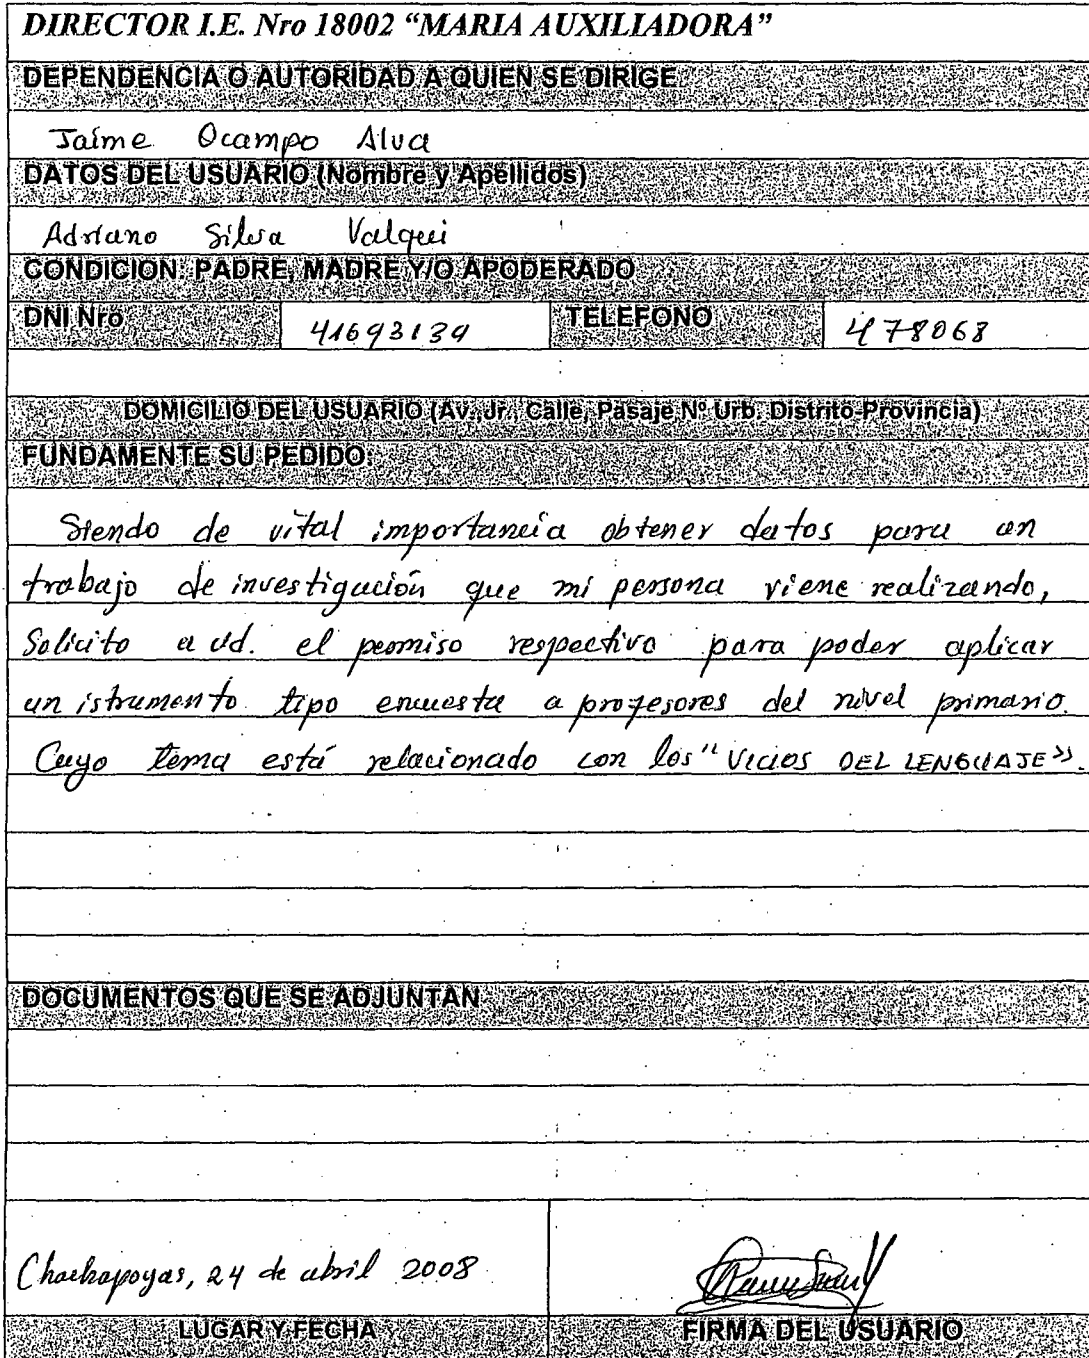 DIRECTOR I.E. Nro 18002 “MARIA AUXILIADORA”
DEPENDENCIA O AUTORIDAD A QUIEN SE DIRIGE
Jaime Ocampo Alva
DATOS DEL USUARIO (Nombre y Apellidos)
Adriano Silva Valqui
CONDICION: PADRE, MADRE Y/O APODERADO
DNI Nro 41693139 TELEFONO 478068
DOMICILIO DEL USUARIO (Av., Jr., Calle, Pasaje Nº Urb. Distrito-Provincia)
FUNDAMENTE SU PEDIDO:
Siendo de vital importancia obtener datos para un
trabajo de investigación que mi persona viene realizando,
Solicito a ud. el permiso respectivo para poder aplicar
un istrumento tipo encuesta a profesores del nivel primario.
Cuyo tema está relacionado con los "VICIOS DEL LENGUAJE".
DOCUMENTOS QUE SE ADJUNTAN
Chachapoyas, 24 de abril 2008
LUGAR Y FECHA FIRMA DEL USUARIO